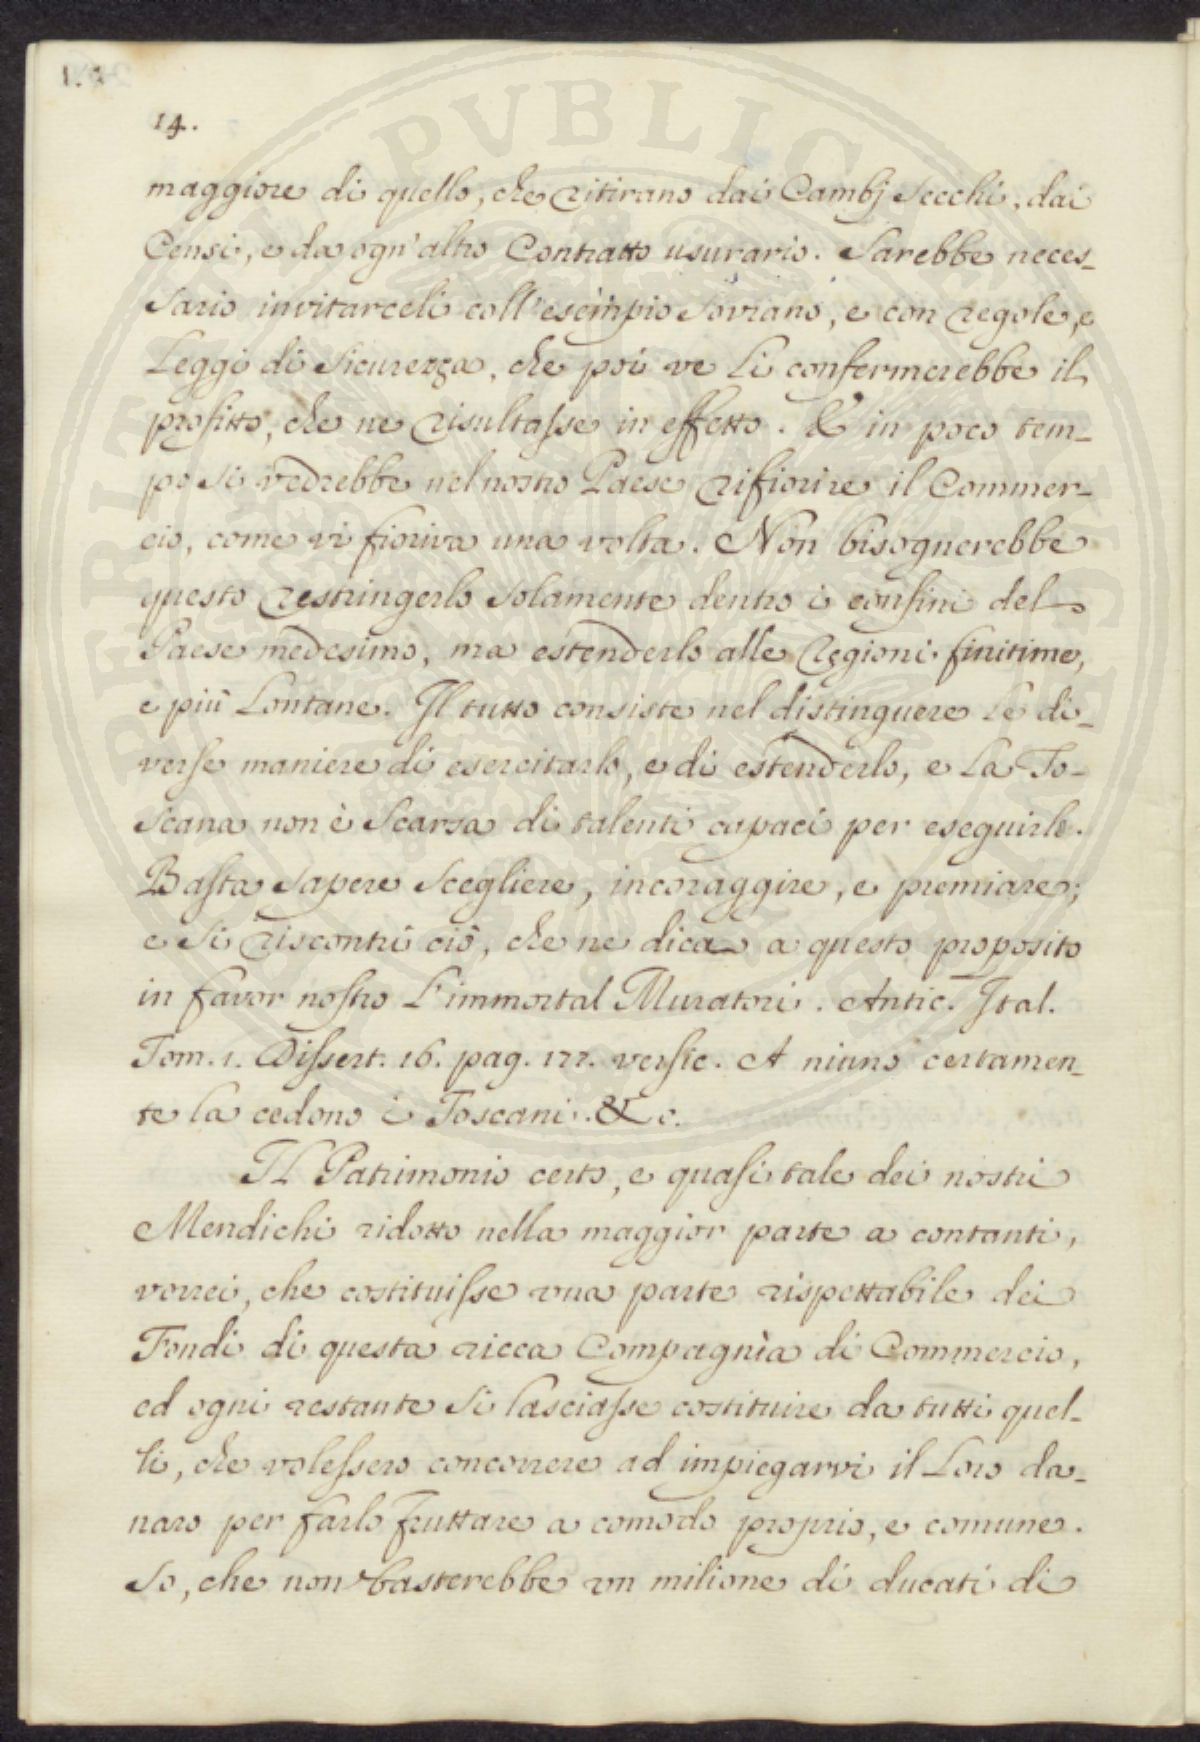 14.
maggiore di quello, che ritirano dai Cambj secchi, dai
Censi, e da ogn'altro Contratto usurario. Sarebbe neces_
sario invitarceli coll'esempio Sovrano, e con regole, e
Leggi di Sicurezza, che poi ve li confermerebbe il
profitto, che ne risultasse in effetto. E in poco tem_
po si vedrebbe nel nostro Paese rifiorire il Commer_
cio, come vi fioriva una volta. Non bisognerebbe
questo restringerlo solamente dentro i confini del
Paese medesimo, ma estenderlo alle regioni finitime,
e più Lontane. Il tutto consiste nel distinguere le di_
verse maniere di esercitarlo, e di estenderlo, e la To_
scana non è scarsa di talenti capaci per eseguirle.
Basta sapere scegliere, incoraggire, e premiare;
e si riscontri ciò, che ne dica a questo proposito
in favor nostro L'immortal Muratori. Antic. Ital.
Tom. 1. Dissert. 16. pag. 177. versic. A niuno certamen_
te la cedono i Toscani. &c.
Il Patrimonio certo, e quasi tale dei nostri
Mendichi ridotto nella maggior parte a contanti,
vorrei, che costituisse una parte rispettabile dei
Fondi di questa ricca Compagnìa di Commercio,
ed ogni restante si lasciasse costituire da tutti quel_
li, che volessero concorrere ad impiegarvi il Loro da_
naro per farlo fruttare a comodo proprio, e comune.
So, che non basterebbe un milione di ducati di
PUBLIC